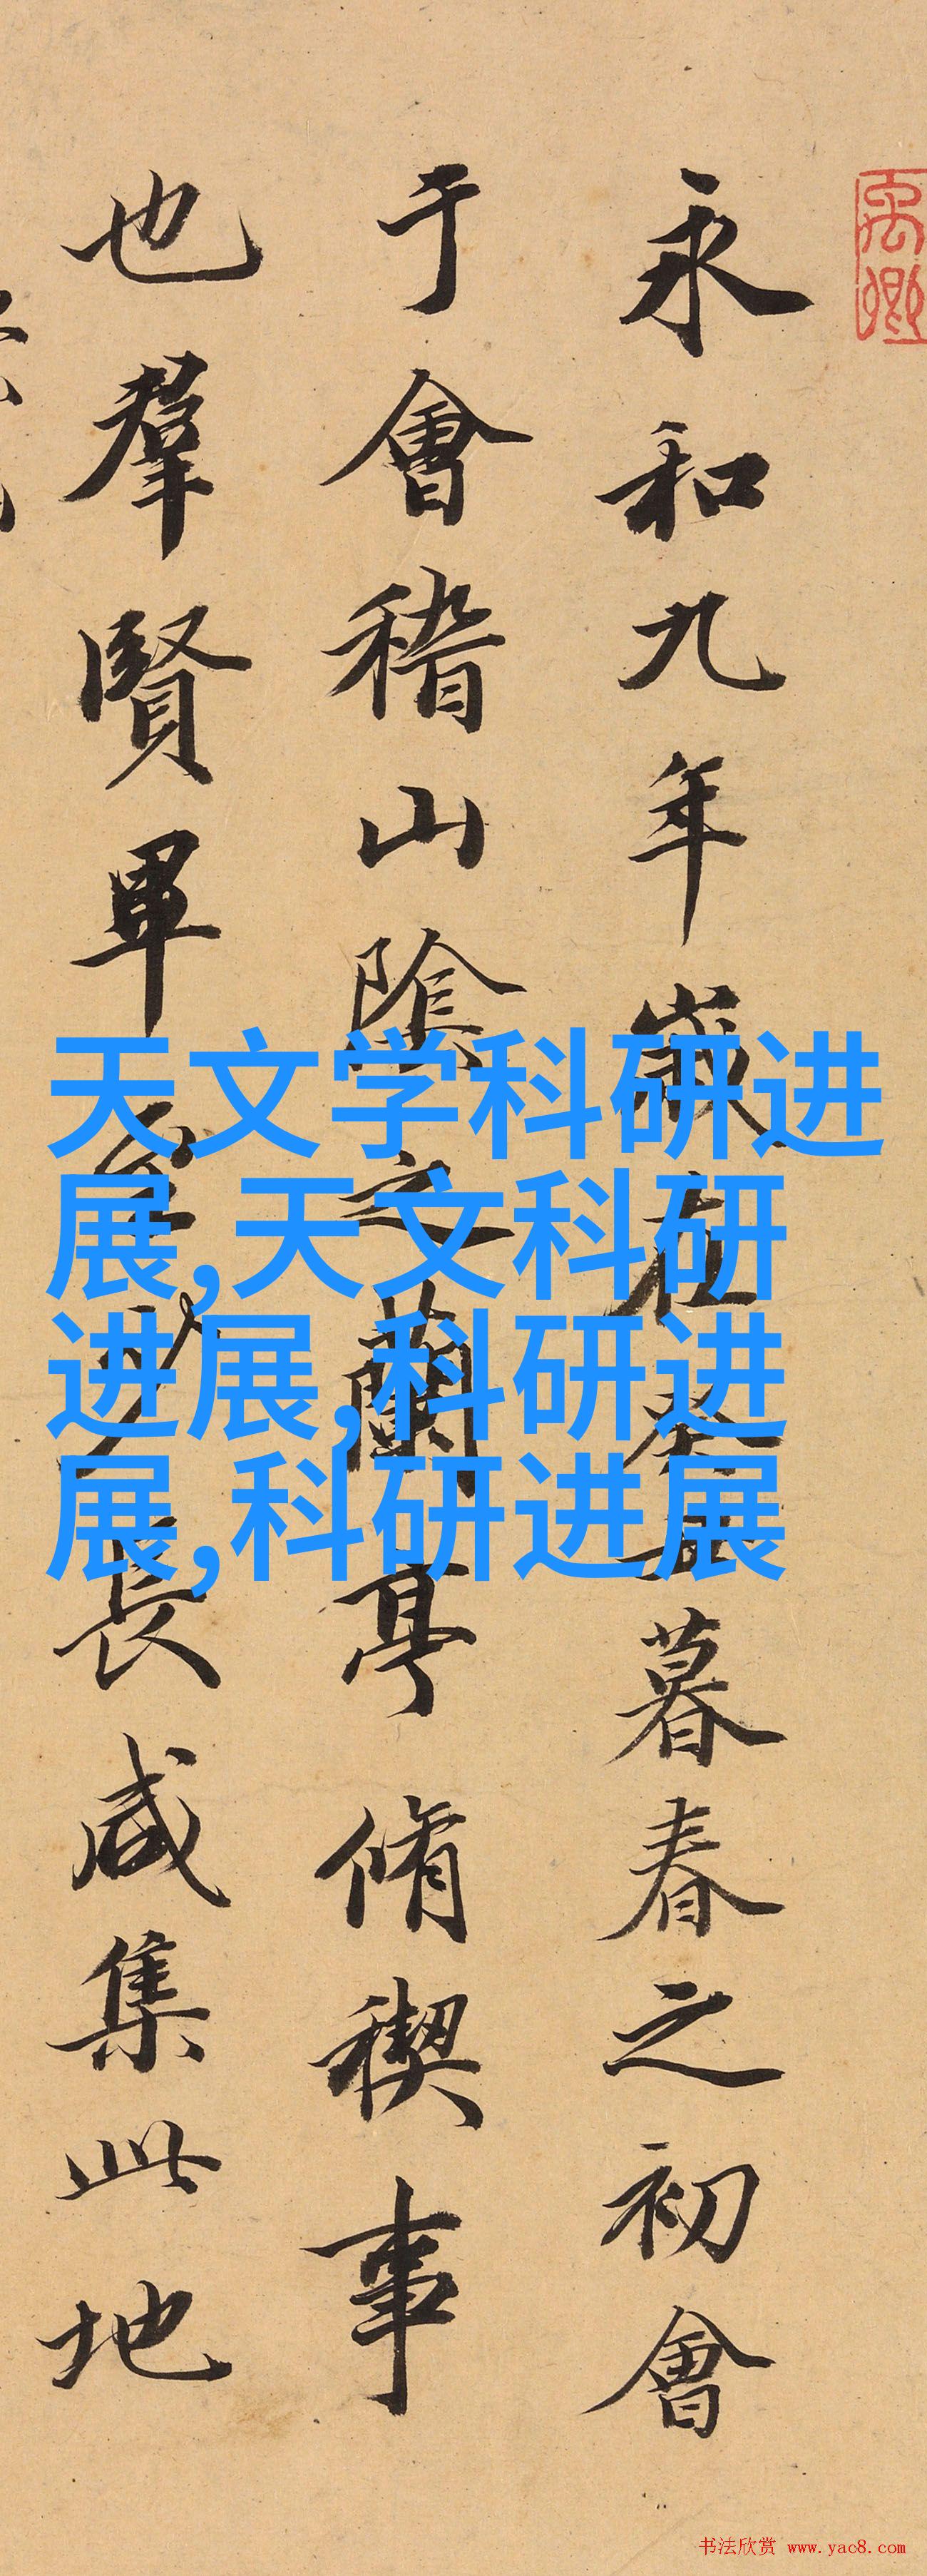 永和九年歲在癸丑暮春之初會
于會稽山陰之蘭亭脩稧事
也羣賢畢至少長咸集此地
天文学科研进
展,天文科研
进展,科研进
展,科研进展
书法欣赏 www.yac8.com